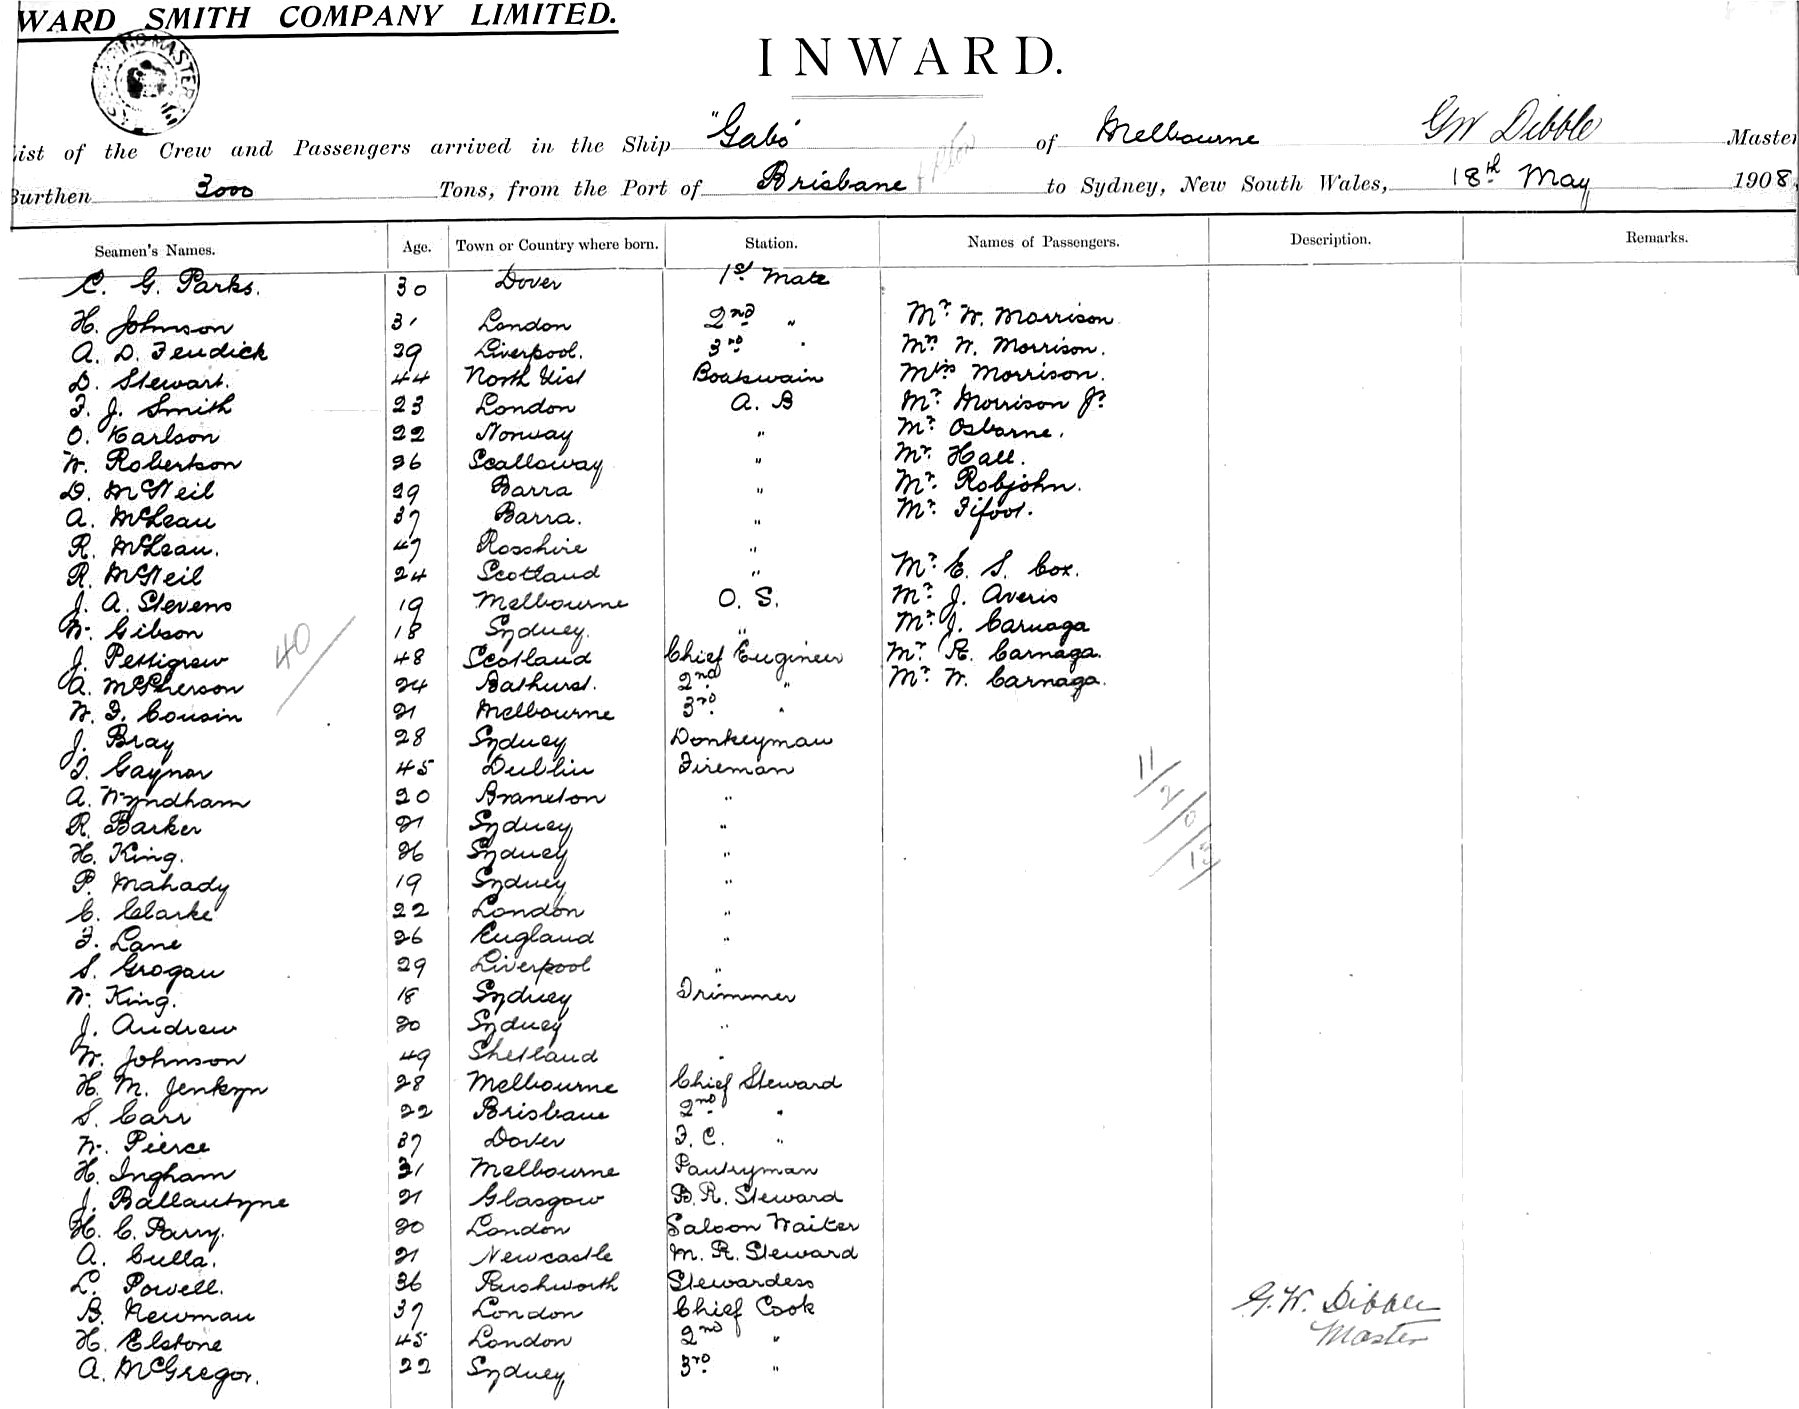 WARD SMITH COMPANY LIMITED.
INWARD.
List of the Crew and Passengers arrived in the Ship "Gabo" of Melbourne GW Dibble Master
Burthen 3000 Tons, from the Port of Brisbane to Sydney, New South Wales, 18th May 1908
Seamen's Names. Age. Town or Country where born. Station. Names of Passengers. Description. Remarks.
C. G. Parks. 30 Dover 1st Mate
H. Johnson 31 London 2nd " Mr. W. Morrison
A. D. Fendick 29 Liverpool. 3rd " Mrs W. Morrison.
D. Stewart. 44 North Uist Boatswain Miss Morrison.
F. J. Smith 23 London A. B Mr. Morrison Jr
O. Karlson 22 Norway " Mr. Osborne.
W. Robertson 26 Scalloway " Mr. Hall.
D. McNeil 29 Barra " Mr. Robjohn.
A. McLean 37 Barra. " Mr. Fifoot.
R. McLean. 47 Rosshire "
R. McNeil 24 Scotland " Mr. E. S. Cox.
J. A. Stevens 19 Melbourne O. S. Mr. J. Averis
W. Gibson 18 Sydney. " Mr. J. Carnaga
J. Pettigrew 48 Scotland Chief Engineer Mr. R. Carnaga.
A. McPherson 24 Bathurst. 2nd " Mr. W. Carnaga.
W. F. Cousin 21 Melbourne 3rd "
40
J. Bray 28 Sydney Donkeyman
T. Gaynor 45 Dublin Fireman
A. Wyndham 20 Branxton "
11/2/0/13
R. Barker 21 Sydney "
H. King. 26 Sydney "
P. Mahady 19 Sydney "
C. Clarke 22 London "
F. Lane 26 England "
S. Grogan 29 Liverpool "
W. King. 18 Sydney Trimmer
J. Andrew 20 Sydney "
W. Johnson 49 Shetland "
H. M. Jenkyn 28 Melbourne Chief Steward
S. Carr 22 Brisbane 2nd "
W. Pierce 37 Dover F. C. "
H. Ingham 31 Melbourne Pantryman
J. Ballantyne 21 Glasgow B. R. Steward
H. C. Parry. 20 London Saloon Waiter
A. Culla. 21 Newcastle M. R. Steward
L. Powell. 36 Rushworth Stewardess
B. Newman 37 London Chief Cook G. W. Dibble
H. Elstone 45 London 2nd " Master
A. McGregor. 22 Sydney 3rd "